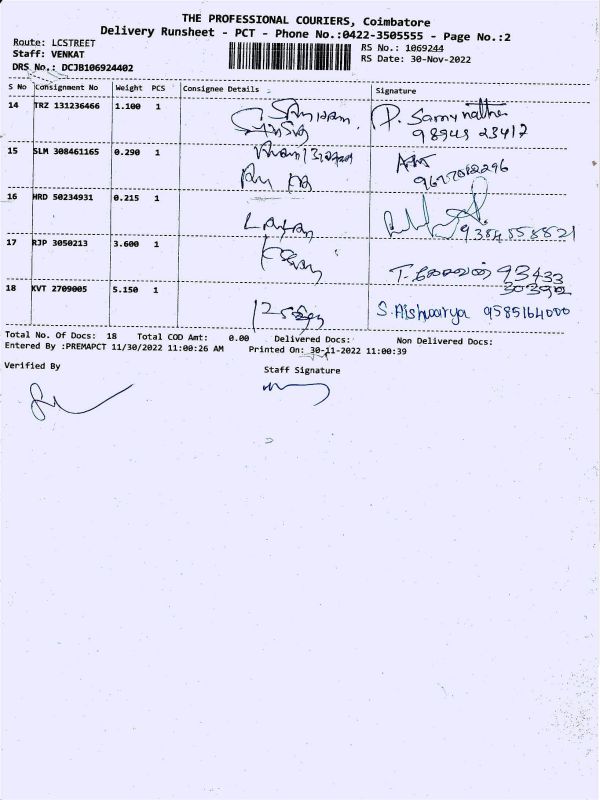 THE PROFESSIONAL COURIERS, Coimbatore
Delivery Runsheet - PCT - Phone No.:0422-3505555 - Page No.:2
Route: LCSTREET
RS No.: 1069244
Staff: VENKAT
RS Date: 30-Nov-2022
DRS No.: DCJB106924402
S No Consignment No Weight PCS Consignee Details Signature
14 TRZ 131236466 1.100 1
P. Samynathan
98943 23417
15 SLM 308461165 0.290 1
16 HRD 50234931 0.215 1
9384558821
17 RJP 3050213 3.600 1
T. 93433
30390
18 KVT 2709005 5.150 1
S. Aishwarya 9585164000
Total No. Of Docs: 18 Total COD Amt: 0.00 Delivered Docs: Non Delivered Docs:
Entered By :PREMAPCT 11/30/2022 11:00:26 AM Printed On: 30-11-2022 11:00:39
Verified By
Staff Signature